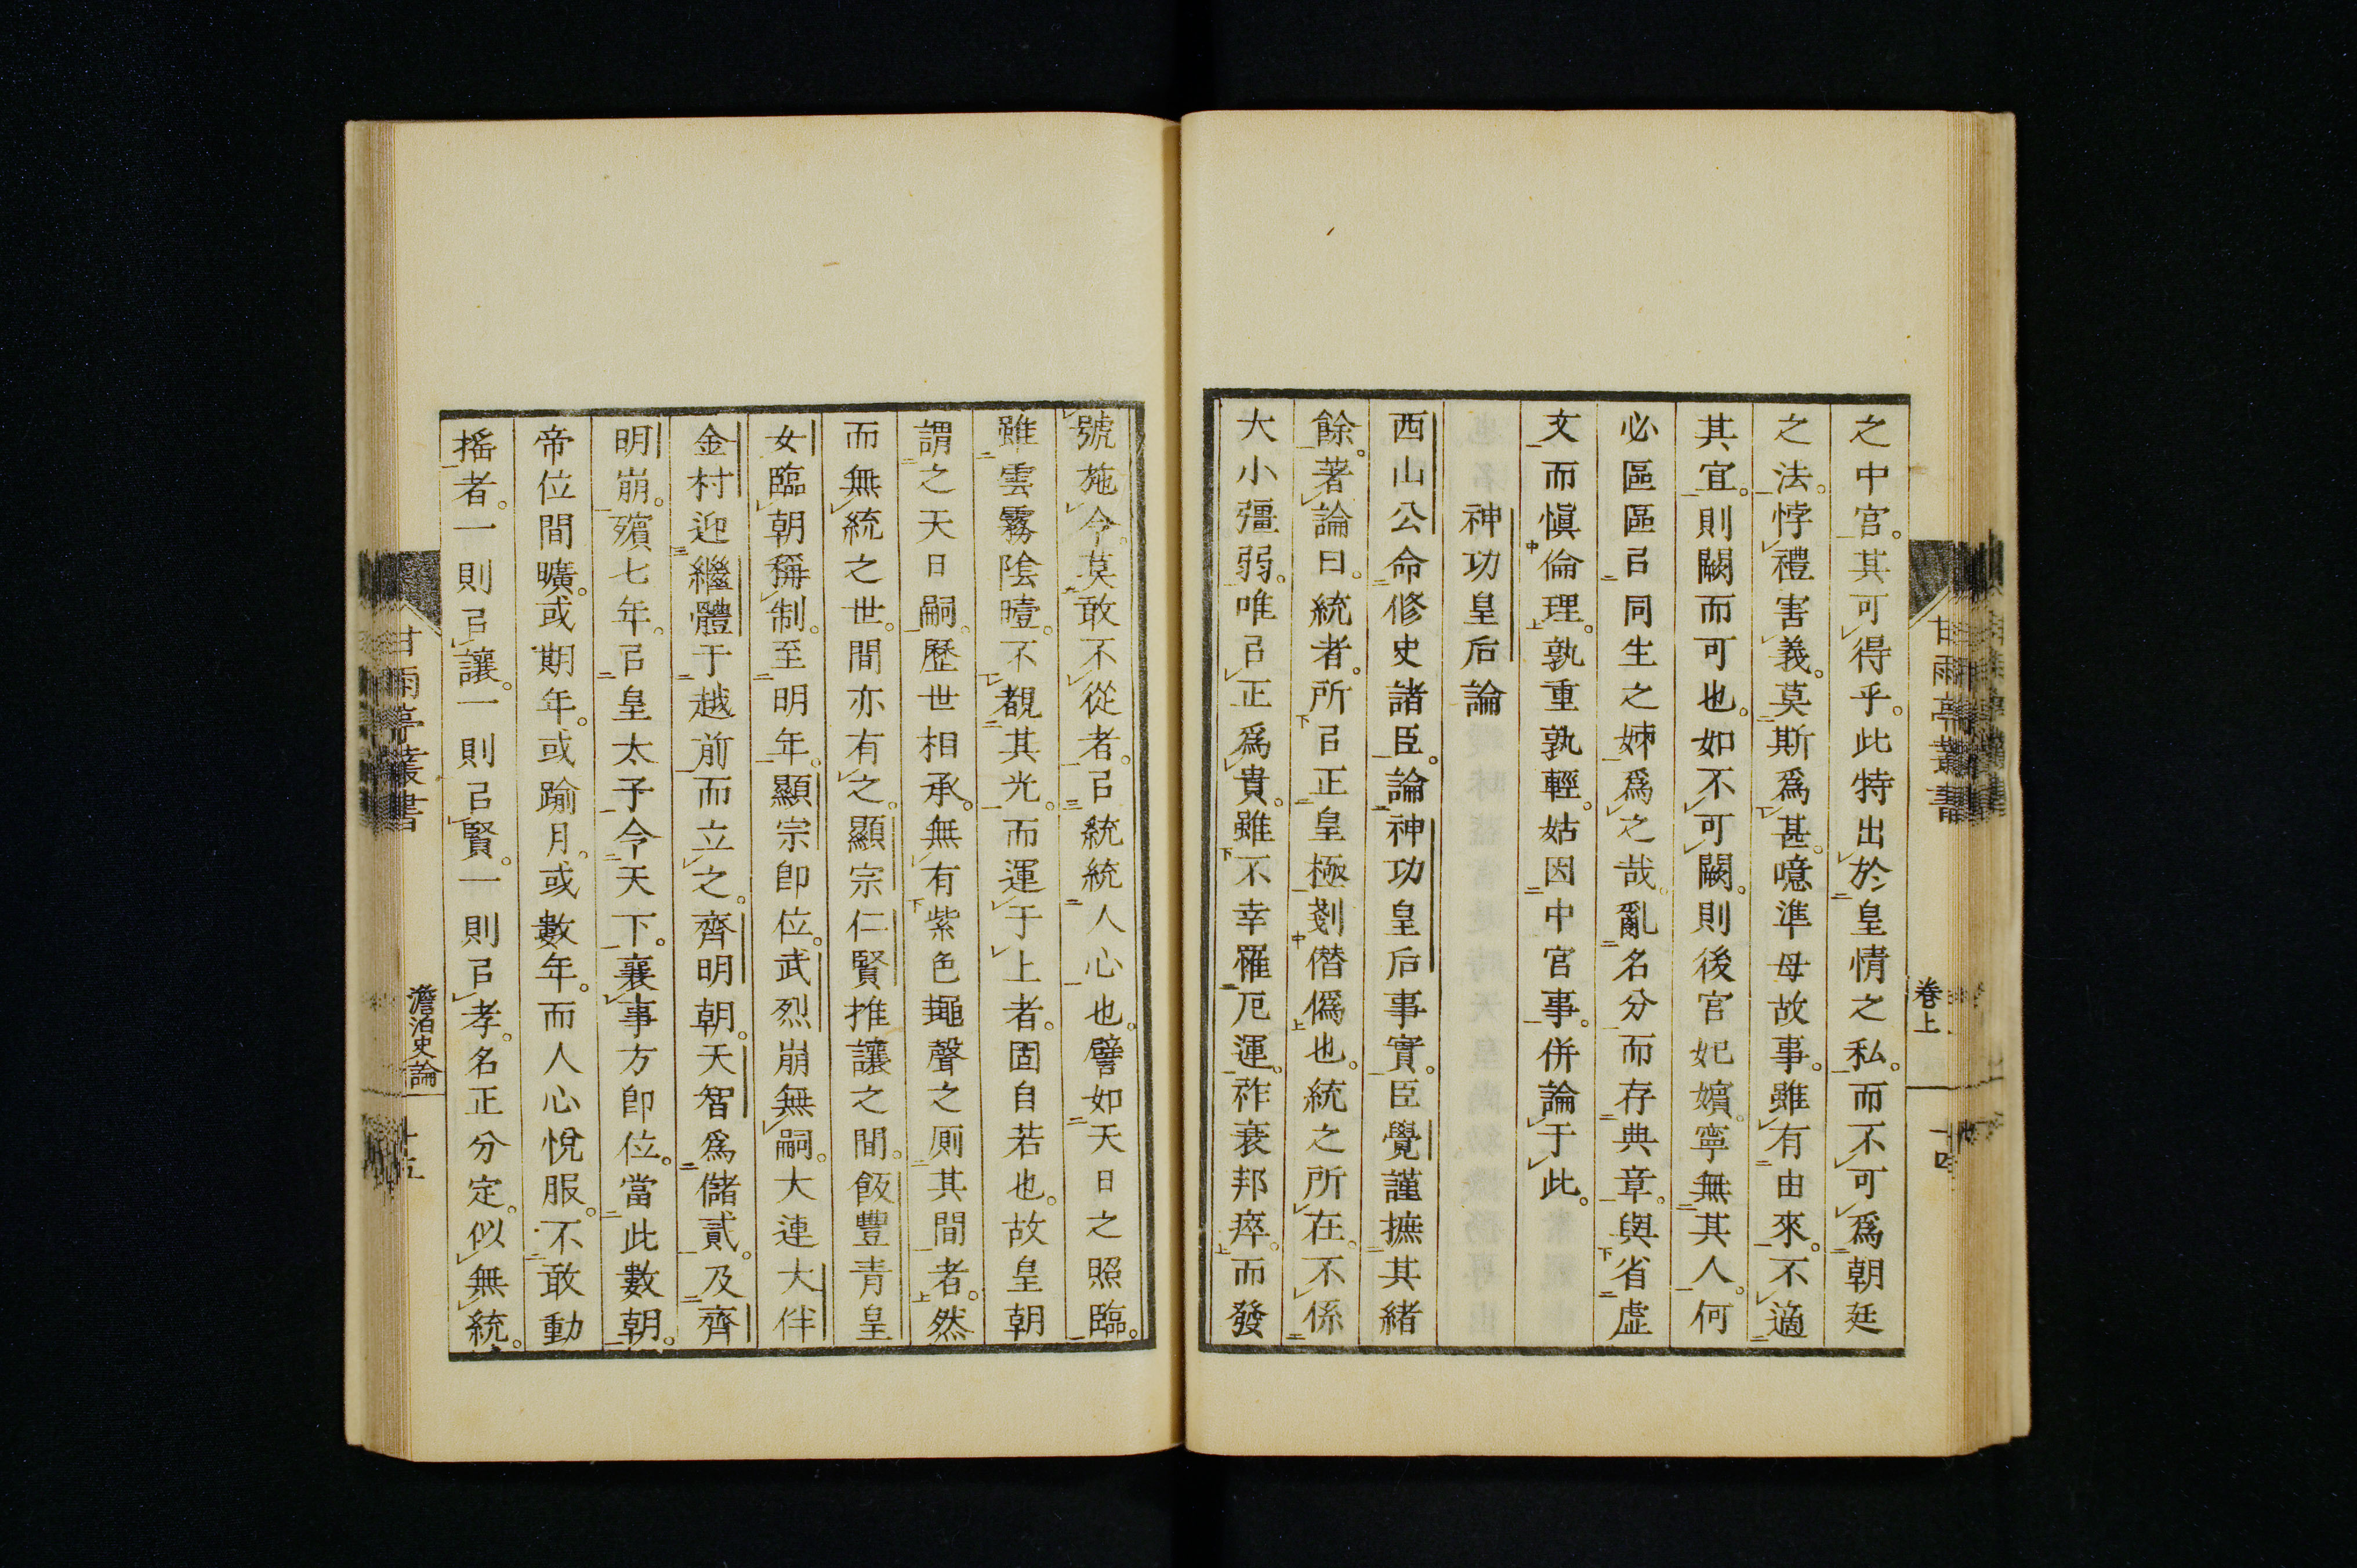 之中宮。其可得乎。此特出於皇情之私。而不可爲朝廷
之法。悖禮害義。莫斯爲甚。噫準母故事。雖有由來。不適
其宜。則闕而可也。如不可闕。則後宮妃嬪。寧無其人。何
必區區㠯同生之姊爲之哉。亂名分而存典章。與省虛
文而愼倫理。孰重孰輕。姑因中宮事。併論于此。
神功皇后論
西山公命修史諸臣。論神功皇后事實。臣覺謹摭其緒
餘。著論曰。統者。所㠯正皇極剗僭僞也。統之所在。不係
大小彊弱。唯㠯正爲貴。雖不幸罹厄運。祚衰邦瘁。而發
號施令。莫敢不從者。㠯統統人心也。譬如天日之照臨。
雖雲霧陰曀。不覩其光。而運于上者。固自若也。故皇朝
謂之天日嗣。歷世相承。無有紫色鼃聲之厠其間者。然
而無統之世。間亦有之。顯宗仁賢推讓之間。飯豐青皇
女臨朝稱制。至明年。顯宗卽位。武烈崩無嗣。大連大伴
金村迎繼體于越前而立之。齊明朝。天智爲儲貳。及齊
明崩。殯七年。㠯皇太子令天下。襄事方卽位。當此數朝。
帝位間曠。或期年。或踰月。或數年。而人心悅服。不敢動
搖者。一則㠯讓。一則㠯賢。一則㠯孝。名正分定。似無統。
甘雨亭叢書
卷上
十四
甘雨亭叢書
澹泊史論
十五